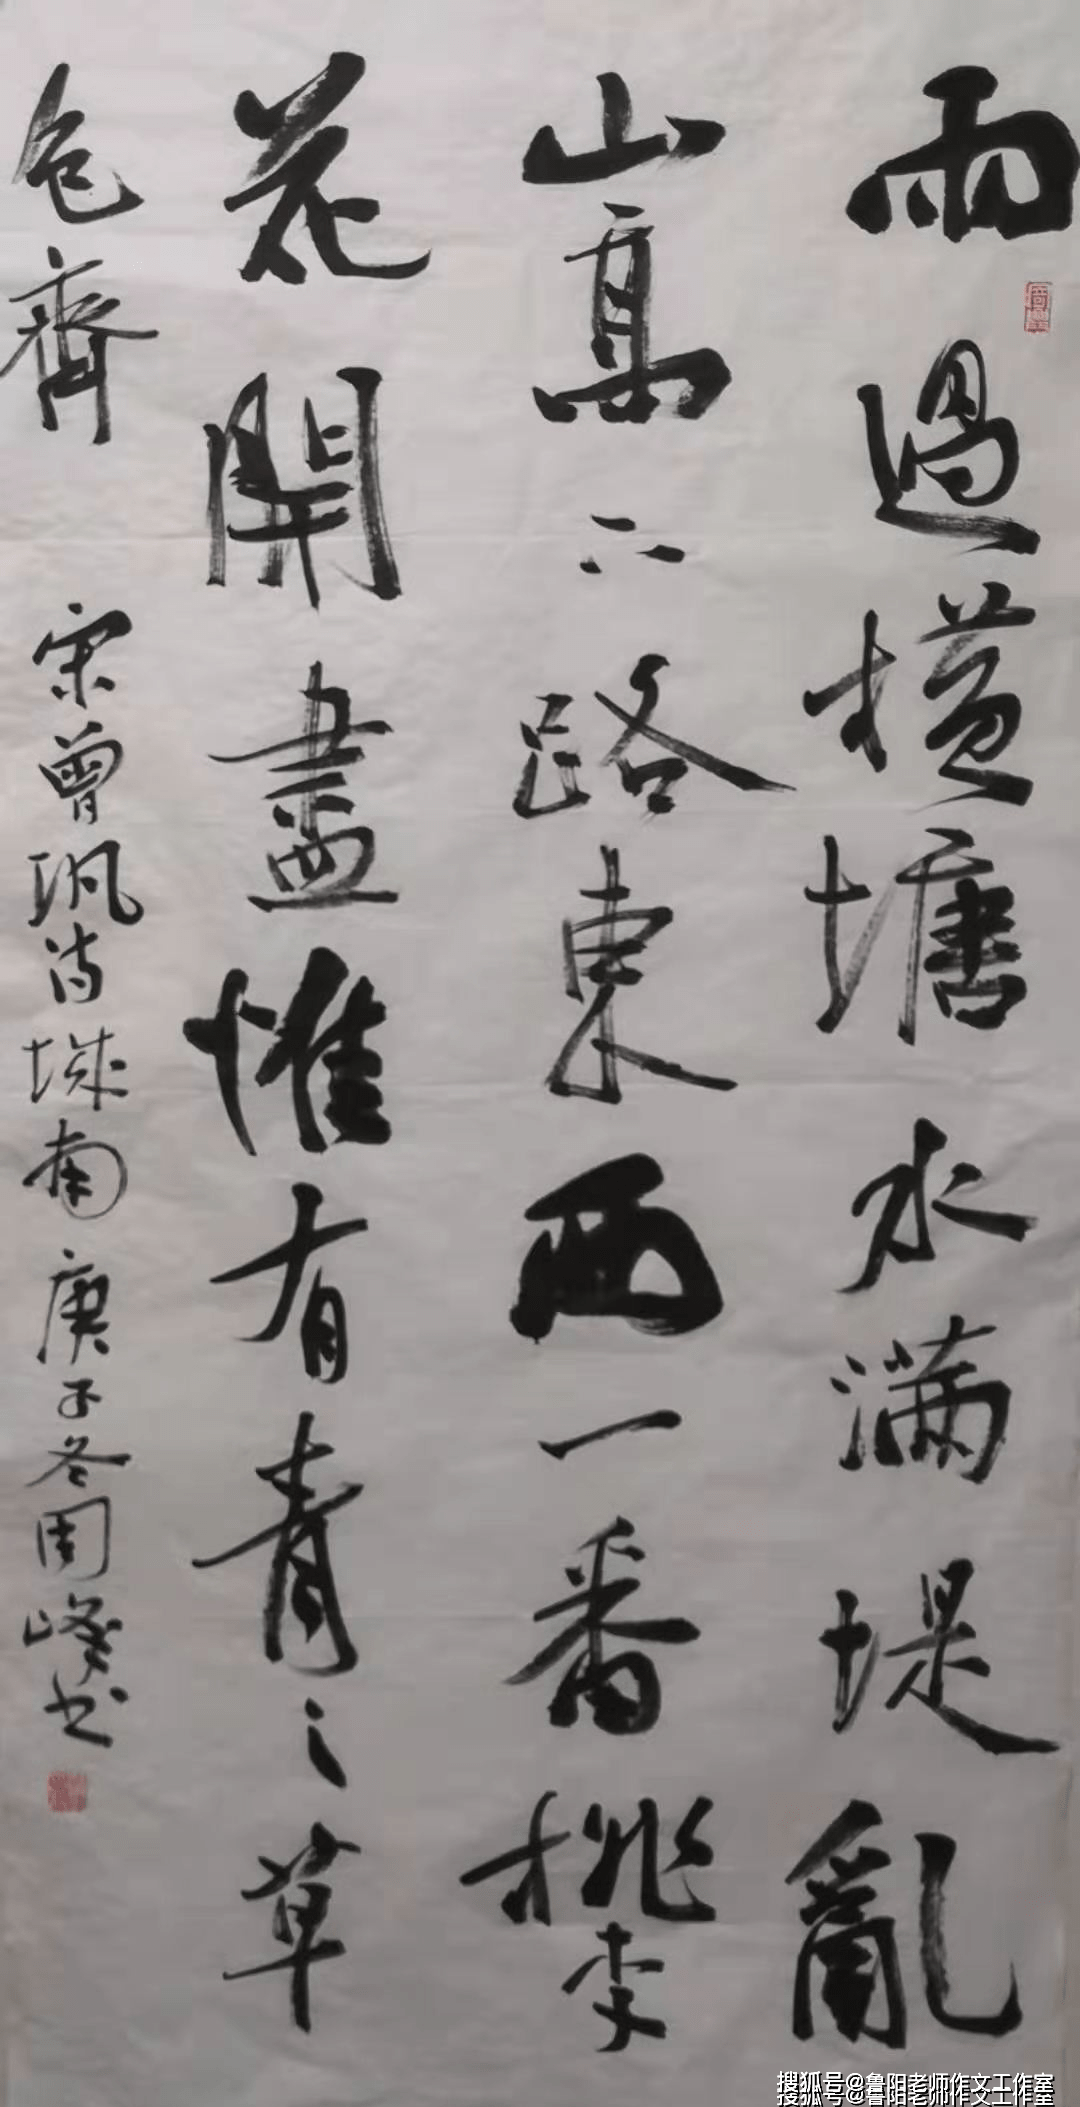 雨過橫塘水滿堤亂
山高下路東西一番桃李
花開盡惟有青々草
色齊 宋曾巩诗城南 庚子冬周峰书
搜狐号@鲁阳老师作文工作室